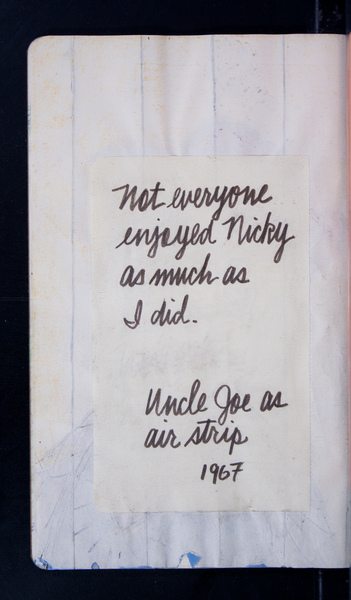 Not everyone
enjoyed Nicky
as much as
I did.
Uncle Joe as
air strip
1967